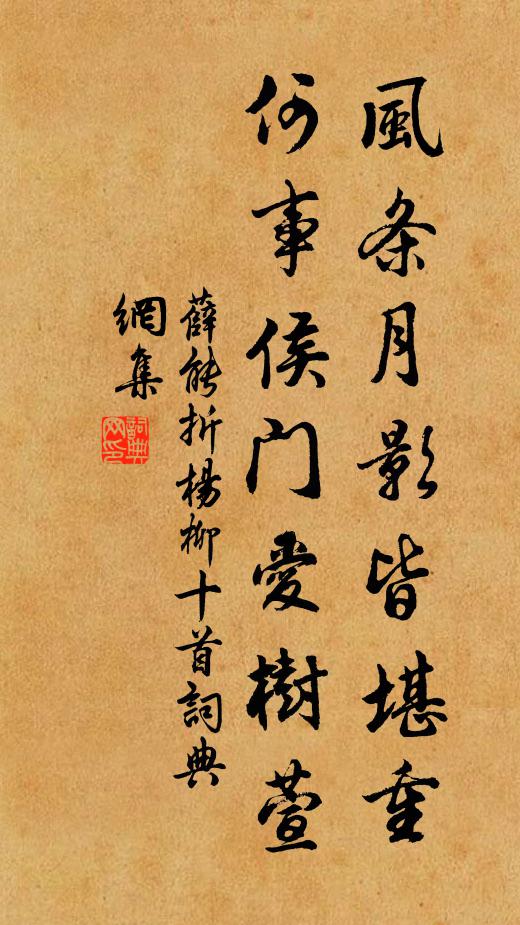 風条月影皆堪重
何事侯門愛樹萱
薛能折楊柳十首詞典
網集
詞典
网印